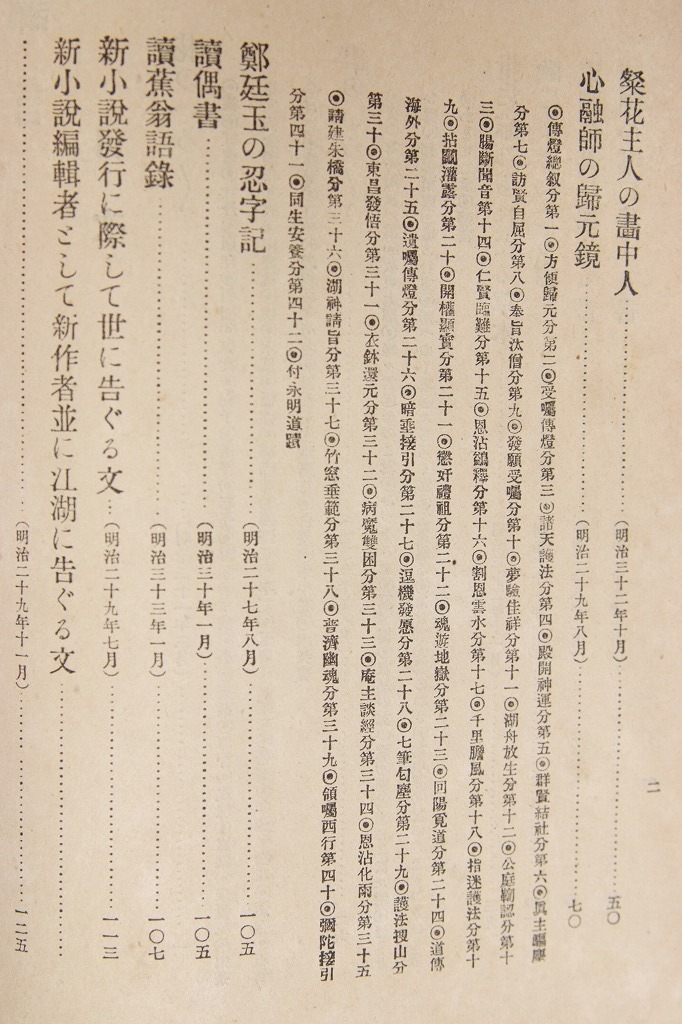 粲花主人の畵中人……………………(明治三十二年十月)……………………五〇
心融師の歸元鏡……………………(明治二十九年八月)……………………七〇
◉傳燈總叙分第一◉方便歸元分第二◉受囑傳燈分第三◉諸天護法分第四◉殿開神運分第五◉群賢結社分第六◉眞主
分第七◉訪賢自屈分第八◉奉旨汰僧分第九◉發願受囑分第十◉夢驗佳祥分第十一◉湖舟放生分第十二◉公庭勘認分第十
三◉腸斷聞音第十四◉仁賢臨難分第十五◉恩沾鷁釋分第十六◉割恩雲水分第十七◉千里瞻風分第十八◉指迷護法分第十
九◉拈鬮灌露分第二十◉開權顯實分第二十一◉懲奸禮祖分第二十二◉魂遊地嶽分第二十三◉回陽覓道分第二十四◉道傳
海外分第二十五◉遺囑傳燈分第二十六◉暗垂接引分第二十七◉逗機發愿分第二十八◉七筆勾塵分第二十九◉護法搜山分
第三十◉東昌發悟分第三十一◉衣鉢還元分第三十二◉病魔雙困分第三十三◉庵主談經分第三十四◉恩沾化雨分第三十五
◉請建朱橋分第三十六◉湖神請旨分第三十七◉竹窓垂範分第三十八◉普濟幽魂分第三十九◉領囑西行第四十◉彌陀接引
分第四十一◉同生安養分第四十二◉付永明道蹟
鄭廷玉の忍字記……………………(明治二十七年八月)……………………一〇五
讀偶書……………………(明治三十年一月)……………………一〇五
讀蕉翁語錄……………………(明治三十三年一月)……………………一〇七
新小說發行に際して世に告ぐる文…(明治二十九年七月)……………………一一三
新小說編輯者として新作者並に江湖に告ぐる文……………………
……………………(明治二十九年十一月)……………………一二五
二